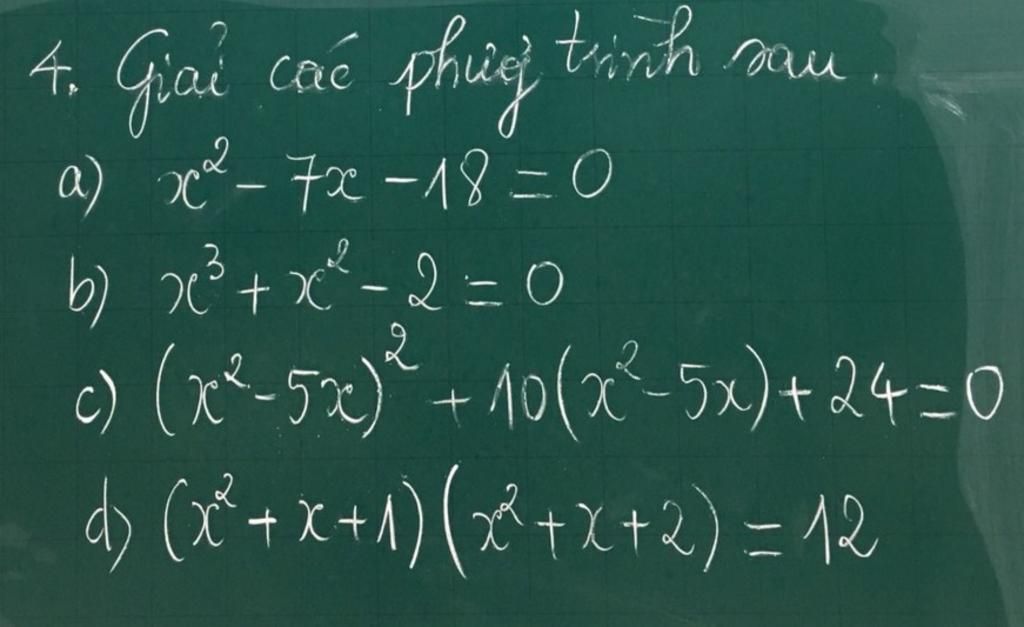 4. Giải các phương trình sau.
a) x² - 7x - 18 = 0
b) x³ + x² - 2 = 0
c) (x² - 5x)² + 10(x² - 5x) + 24 = 0
d) (x² + x + 1)(x² + x + 2) = 12